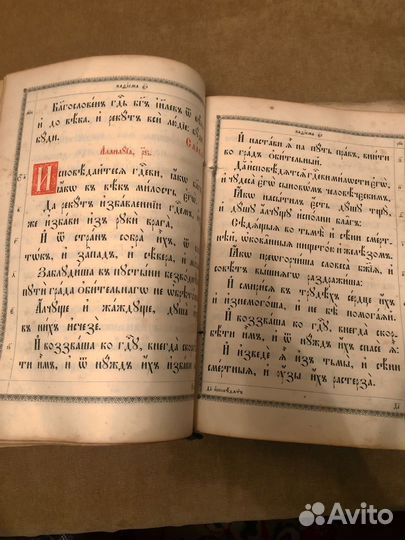 каѳісма ѿі
Благословенъ гдⷭ҇ь бг҃ъ ї҆и҃левъ ѿ вѣка
и҆ до вѣка, и҆ рекутъ вси людїе
буди.
Аллилуїа, рв҃.
Исповѣдаитеся гдⷭ҇еви, ꙗ҆кѡ
ꙗ҆кѡ въ вѣкъ милость є҆гѡ̀.
Да рекутъ избавленїи гдⷭ҇емъ,
же избави изъ руки врага.
И ѿ странъ собра ихъ, ѿ
тѡкъ, и западъ, и сѣвера, и
Заблудиша въ пустыни безводнѣ
пути града обительнагѡ не ѡбрѣтоша
Алчуще и жаждуще, душа
въ нихъ исчезе.
И воззваша ко гдⷭ҇у, внегда скорбѣ
ти имъ, и ѿ нуждъ ихъ избави
каѳісма ѿі
И настави я на путь правъ, внити
во градъ обительный.
Даисповѣдятся гдⷭ҇еви милости є҆гѡ̀,
и чудеса є҆гѡ̀ сыновомъ человѣческимъ.
Ꙗкѡ насытилъ есть душу тщу,
и душу алчущу исполни благъ.
Сѣдящыя во тьмѣ и сѣни смерт
нѣи, ѡкованныя нищетою и желѣзомъ.
Ꙗкѡ преѡгорчиша словеса бж҃їя, и
совѣтъ вышнягѡ раздражиша.
И смирися въ трудѣхъ сердце ихъ
и изнемогоша, и не бѣ помогаяи.
И воззваша ко гдⷭ҇у, внегда скор
бѣти имъ, и ѿ нуждъ ихъ спасе я.
И изведе я изъ тьмы, и сѣни
смертныя, и ѹзы ихъ растерза.
Avito